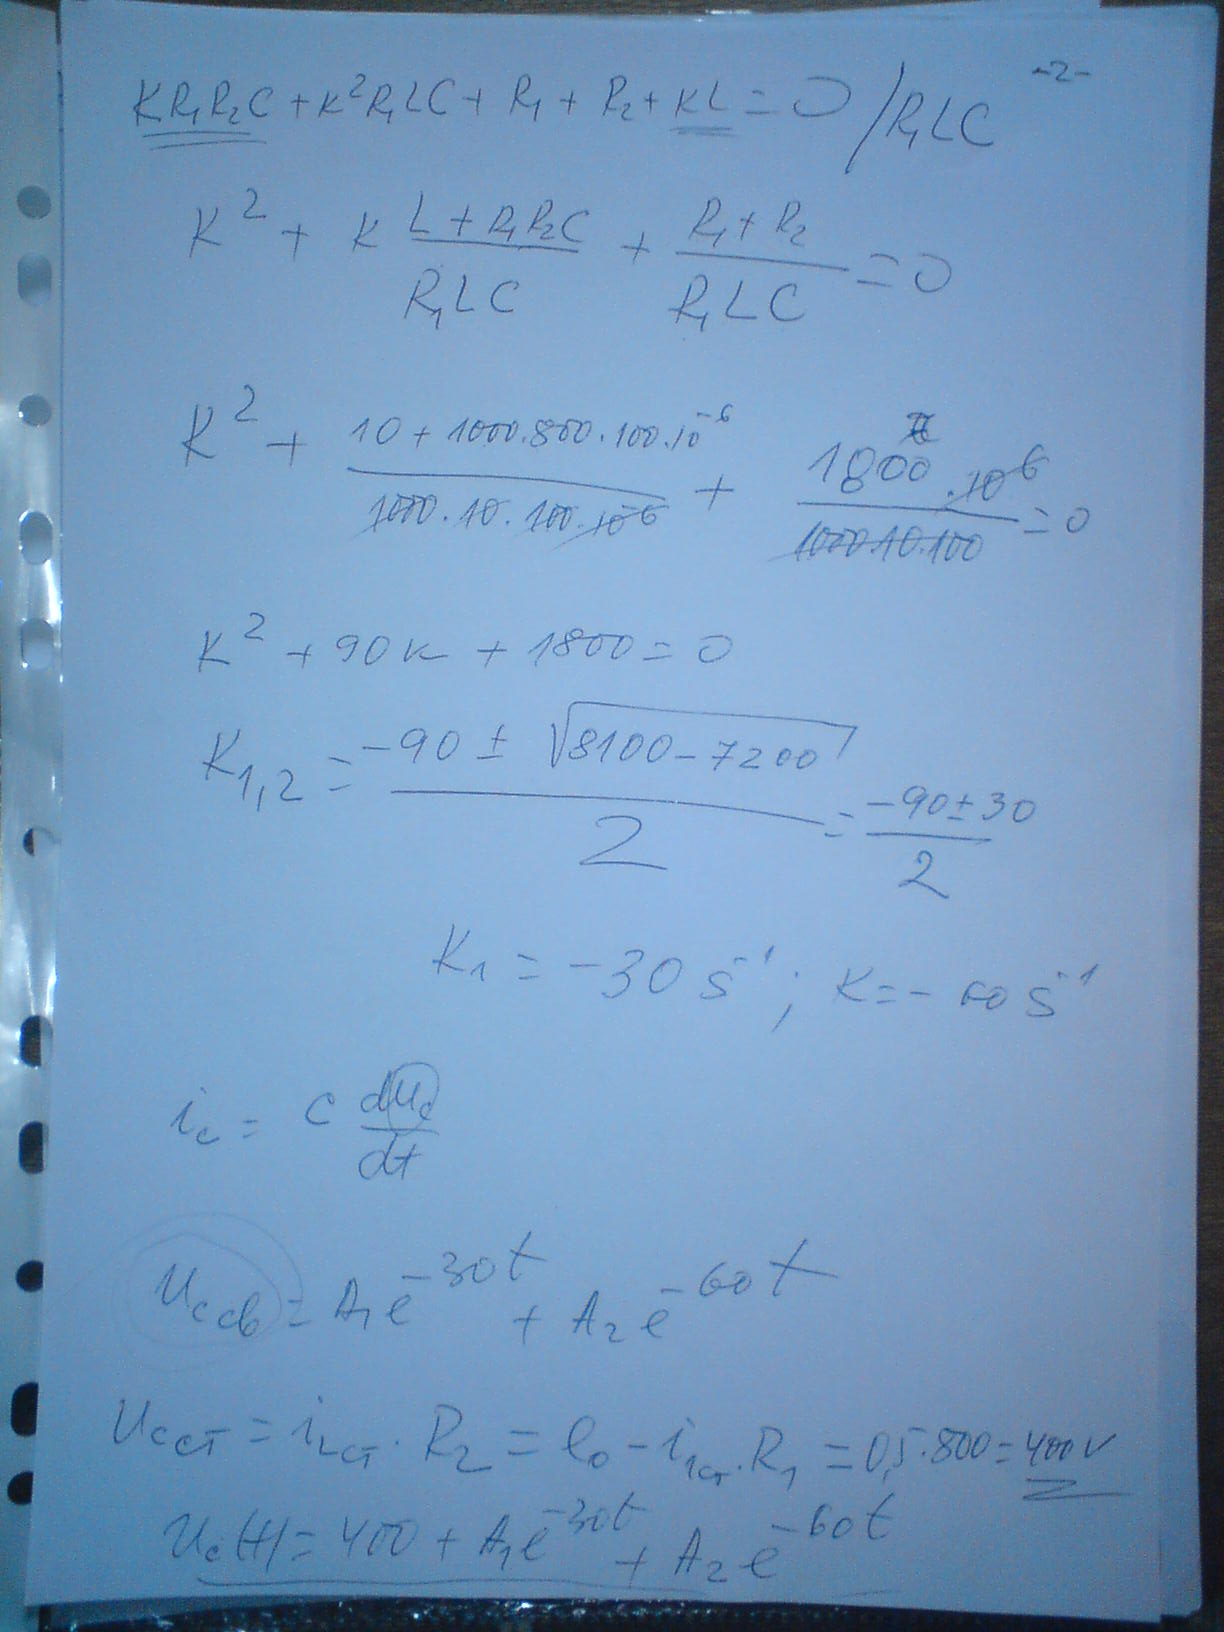 -2-
KR₁R₂C + K²R₁LC + R₁ + R₂ + KL = 0 /R₁LC
K² + K (L + R₁R₂C)/(R₁LC) + (R₁ + R₂)/(R₁LC) = 0
K² + (10 + 1000.800.100.10⁻⁶)/(1000.10.100.10⁻⁶) + (1800.10⁶)/(1000.10.100) = 0
K² + 90K + 1800 = 0
K₁,₂ = (-90 ± √(8100 - 7200))/2 = (-90 ± 30)/2
K₁ = -30 s⁻¹; K = -60 s⁻¹
i_c = C du_c/dt
u_c св = A₁e^(-30t) + A₂e^(-60t)
u_c ст = i₂ст . R₂ = e₀ - i₁ст . R₁ = 0,5.800 = 400V
u_c(t) = 400 + A₁e^(-30t) + A₂e^(-60t)